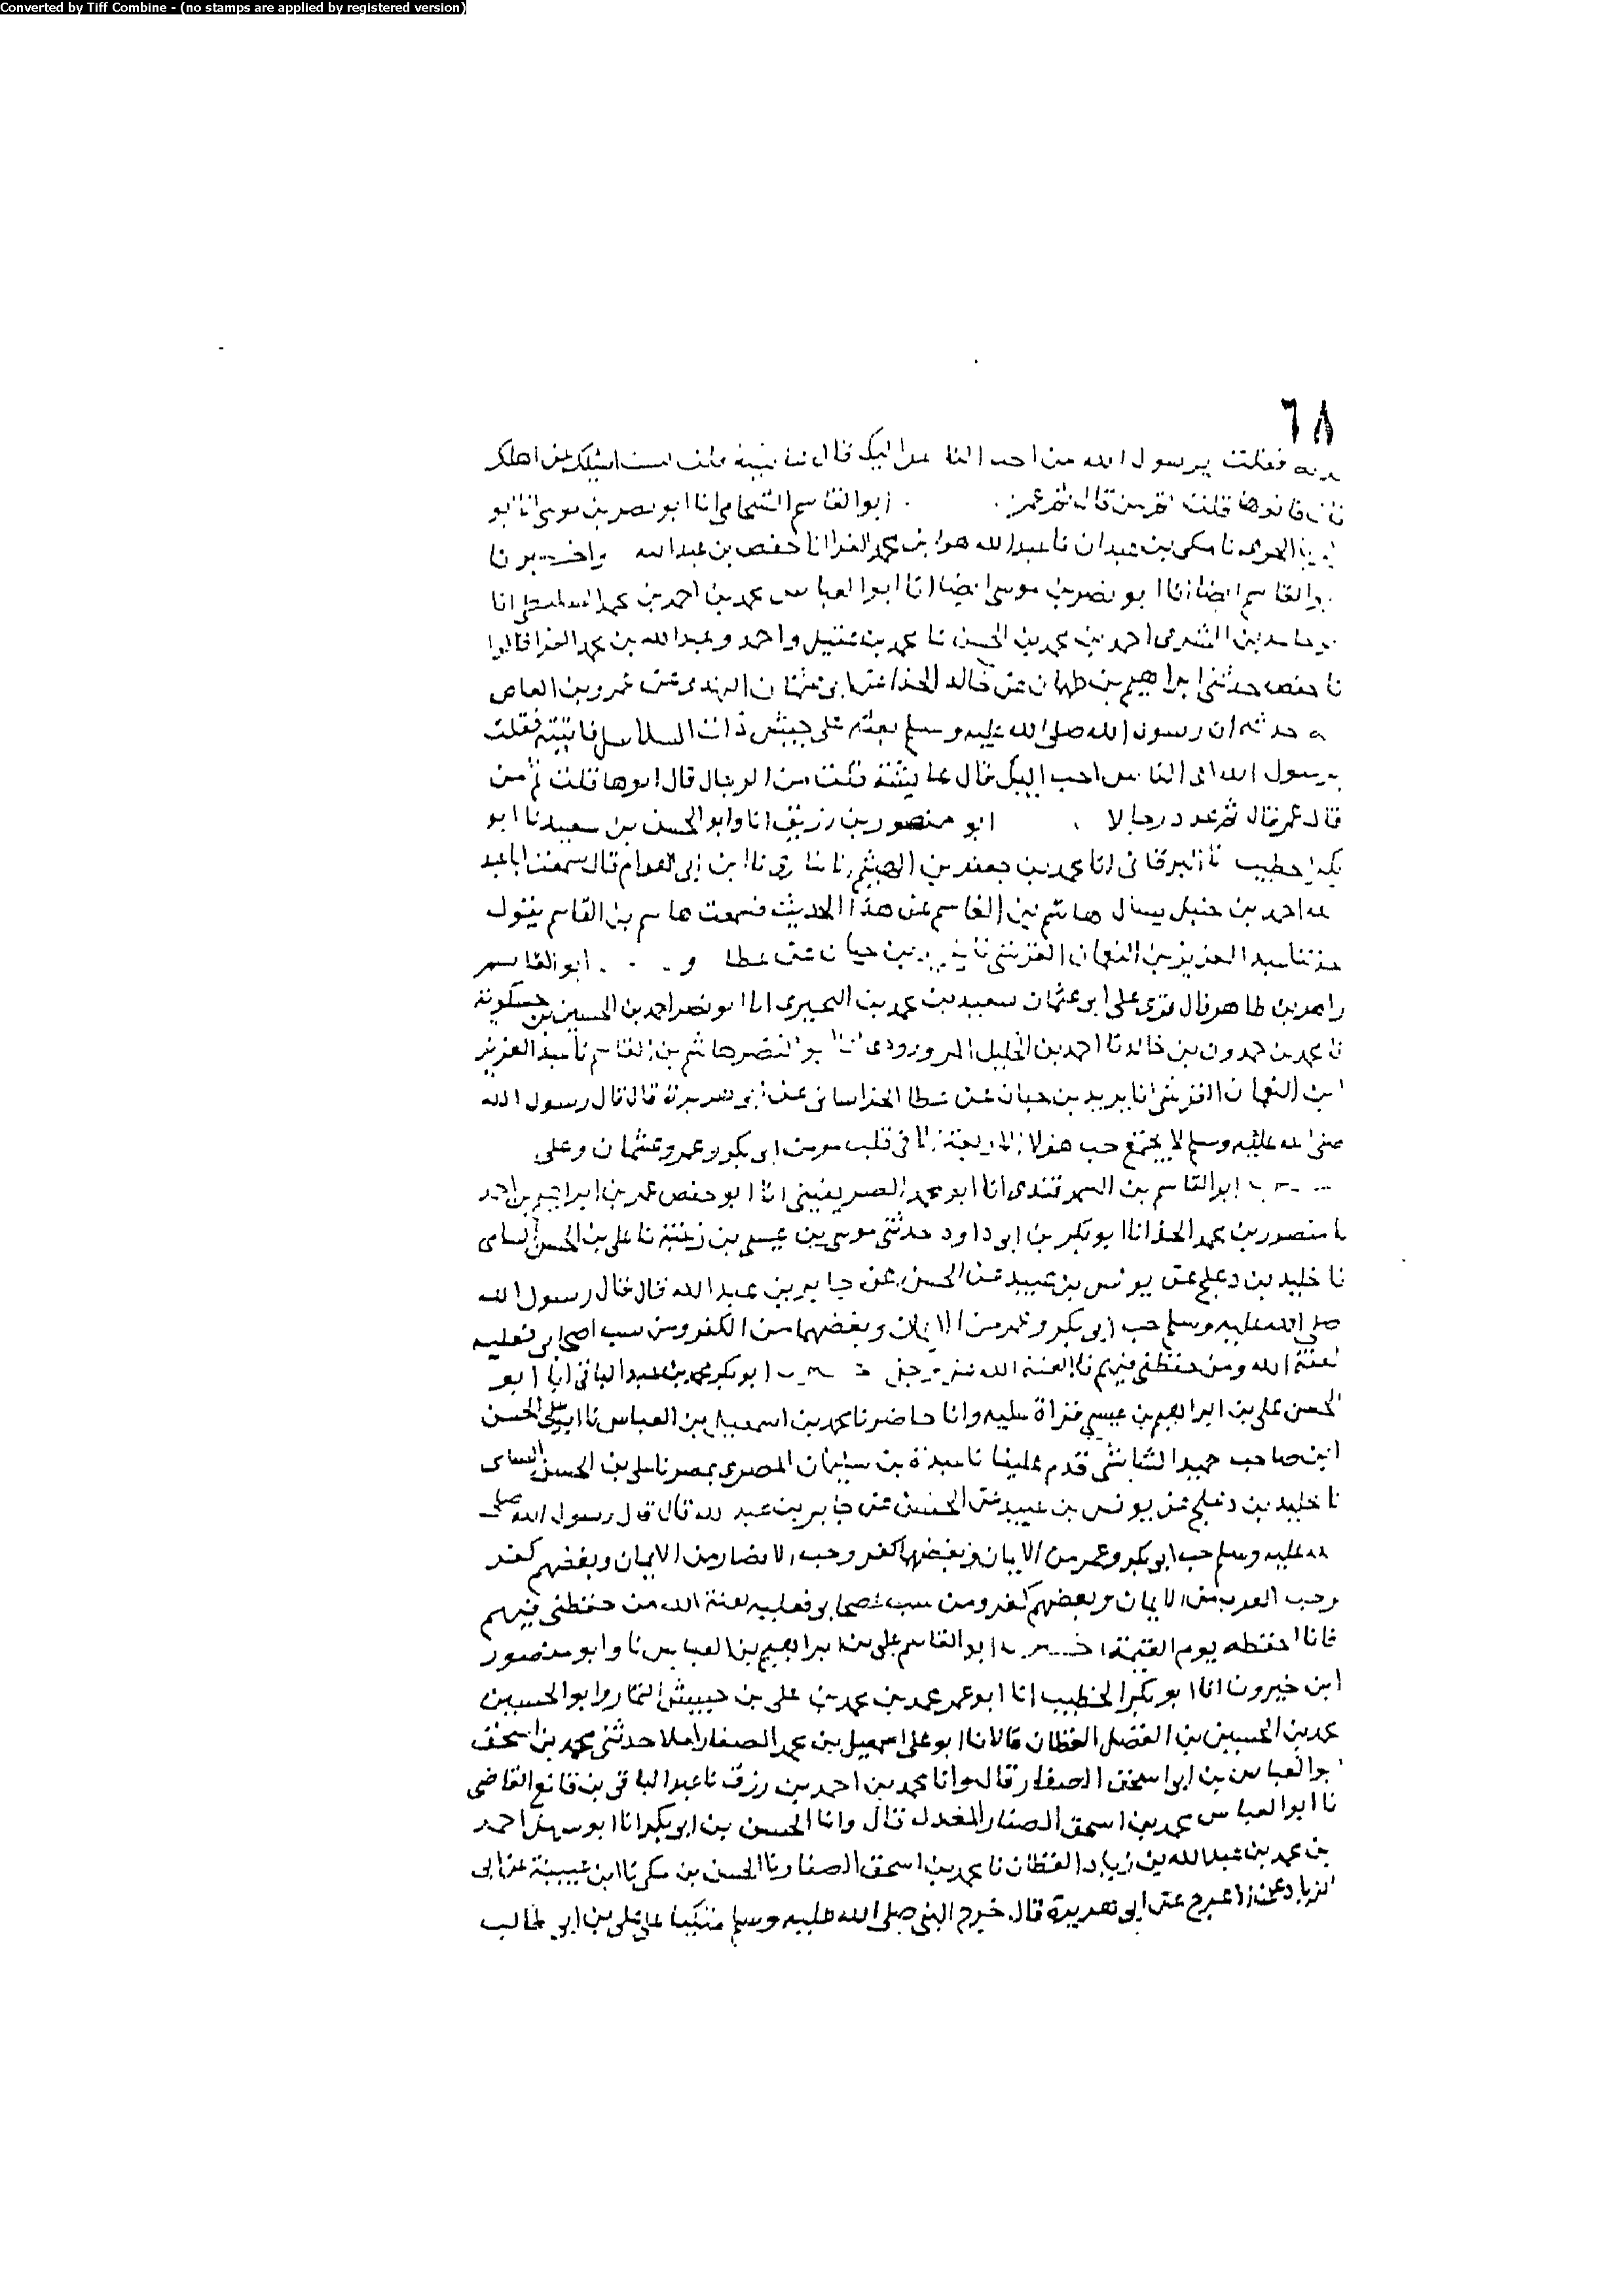 Converted by Tiff Combine - (no stamps are applied by registered version)
٦٨
فقلت يرسول الله من احب الناس اليك قال عايشة قلت لست اسئلك عن اهلك
قال فابوها قلت ثم من قال ثم عمر ابو القاسم الشحامى انا ابو نصر بن موسى انا ابو
نا مكى بن عبدان نا عبد الله هو ابن محمد الفرا نا حفص بن عبد الله واخبرنا
ابو القاسم ايضا انا ابو نصر بن موسى ايضا انا ابو العباس محمد بن احمد بن محمد السليطى انا
ابو حامد بن الشرقى احمد بن محمد بن الحسن نا محمد بن عقيل واحمد وعبد الله بن محمد الفرا قالوا
نا حفص حدثنى ابراهيم بن طهمان عن خالد الحذا عن ابى عثمان النهدى عن عمرو بن العاص
حدثه ان رسول الله صلى الله عليه وسلم بعثه على جيش ذات السلاسل فاتيته فقلت
يرسول الله اى الناس احب اليك قال عايشة قلت من الرجال قال ابوها قلت ثم من
قال عمر قال ثم عد رجالا ابو منصور بن زريق انا وابو الحسن بن سعيد نا ابو
بكر الخطيب نا البرقانى انا محمد بن جعفر بن الهيثم نا ابن ابى العوام قال سمعت ابا عبد
الله احمد بن حنبل يسال هاشم بن القاسم عن هذا الحديث فسمعت هاشم بن القاسم يقول
حدثنا عبد العزيز بن النعمان القرشى نا يزيد بن حيان عن عطا ابو القاسم
زاهر بن طاهر قال قرى على ابو عثمان سعيد بن محمد بن البحيرى انا ابو نصر احمد بن الحسين بن حسكوية
نا محمد بن حمدون بن خالد نا احمد بن الخليل المروروذى نا ابو النضر هاشم بن القاسم نا عبد العزيز
ابن النعمان القرشى نا يزيد بن حيان عن عطا الخراسانى عن ابو هريرة قال قال رسول الله
صلى الله عليه وسلم لا يجتمع حب هولا الاربعة الا فى قلب مومن ابى بكر وعمر وعثمان وعلى
ابو القاسم بن السمرقندى انا ابو محمد الصريفينى انا ابو حفص عمر بن ابراهيم بن احمد
نا منصور بن محمد الحذا نا ابو بكر بن ابى داود حدثنى موسى بن عيسى بن زغبة نا على بن الحسن السامى
نا خليد بن دعلج عن يونس بن عبيد عن الحسن عن جابر بن عبد الله قال قال رسول الله
صلى الله عليه وسلم حب ابى بكر وعمر من الايمان وبغضهما من الكفر ومن سب اصحابى فعليه
لعنة الله ومن حفظنى فيهم ابو بكر محمد بن عبد الباقى انا ابو
الحسن على بن ابراهيم بن عيسى قراة عليه وانا حاضر نا محمد بن اسمعيل بن العباس نا ابو على الحسن
ابن صاحب حميد الشاشى قدم علينا نا عبدة بن سليمان المصرى بمصر نا على بن الحسن السامى
نا خليد بن دعلج عن يونس بن عبيد عن الحسن عن جابر بن عبد الله قال قال رسول الله صلى
الله عليه وسلم حب ابو بكر وعمر من الايمان وبغضهما كفر وحب الانصار من الايمان وبغضهم كفر
وحب العرب من الايمان وبغضهم كفر ومن سب اصحابى فعليه لعنة الله من حفظنى فيهم
فانا احفظه يوم القيمة ابو القاسم على بن ابراهيم بن العباس نا وابو منصور
ابن خيرون انا ابو بكر الخطيب انا ابو عمر محمد بن محمد بن على بن حبيش التمار وابو الحسين
محمد بن الحسين بن الفضل القطان قالا نا ابو على اسمعيل بن محمد الصفار املا حدثنى محمد بن اسحق
ابو العباس بن ابى اسحق الصفار قال وانا محمد بن احمد بن رزق نا عبد الباقى بن قانع القاضى
نا ابو العباس محمد بن اسحق الصفار المعدل قال وانا الحسن بن ابو بكر انا ابو سهل احمد
بن محمد بن عبد الله بن زياد القطان نا محمد بن اسحق الصفار نا الحسن بن مكى نا ابن عيينة عن ابى
الزناد عن الاعرج عن ابى هريرة قال خرج النبى صلى الله عليه وسلم متكيا على على بن ابى طالب